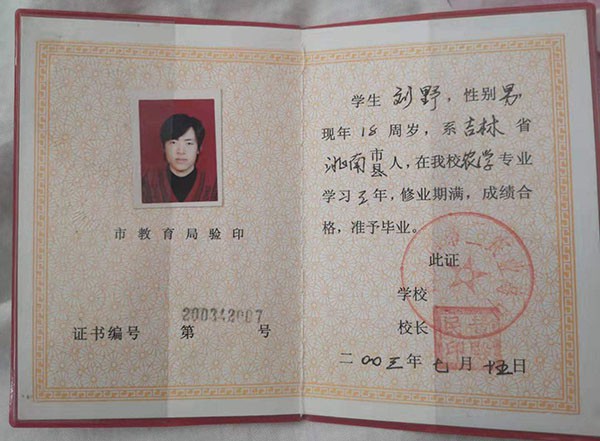 市教育局验印
证书编号 第 200342007 号
学生 刘野，性别男，
现年 18 周岁，系吉林省
洮南市县人，在我校农学专业
学习三年，修业期满，成绩合
格，准予毕业。
此证
学校
校长
二〇〇三年七月十五日